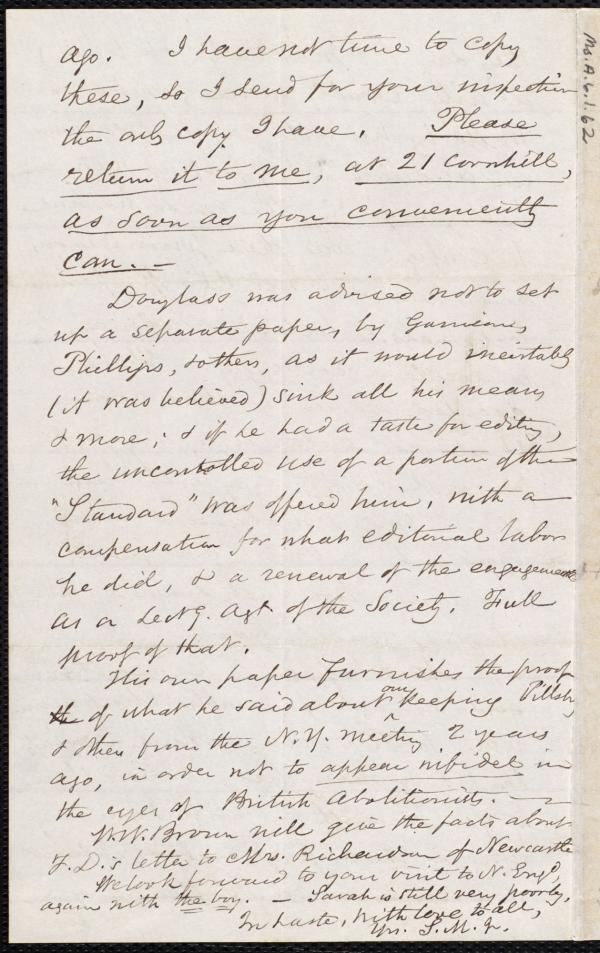 ago. I have not time to copy
these, so I send for your inspection
the only copy I have. Please
return it to me, at 21 Cornhill,
as soon as you conveniently
can. —
Douglass was advised not to set
up a separate paper, by Garrison,
Phillips, & others, as it would inevitably
(it was believed) sink all his means
& more; & if he had a taste for editing,
the uncontrolled use of a portion of the
"Standard" was offered him, with a
compensation for what editorial labor
he did, & a renewal of the engagement
as a Lectg. Agt. of the Society. Full
proof of that.
His own paper furnishes the proof
the of what he said about our keeping Pillsby
& others from the N.Y. meeting 2 years
ago, in order not to appear infidel in
the eyes of British Abolitionists. —
W.W. Brown will give the facts about
F.D.'s letter to Mrs. Richardson of Newcastle
We look forward to your visit to N. Engd,
again with the boy. — Sarah is still very poorly.
In haste, with love to all,
Yrs. S. M. Jr.
Ms.A.6.1.62